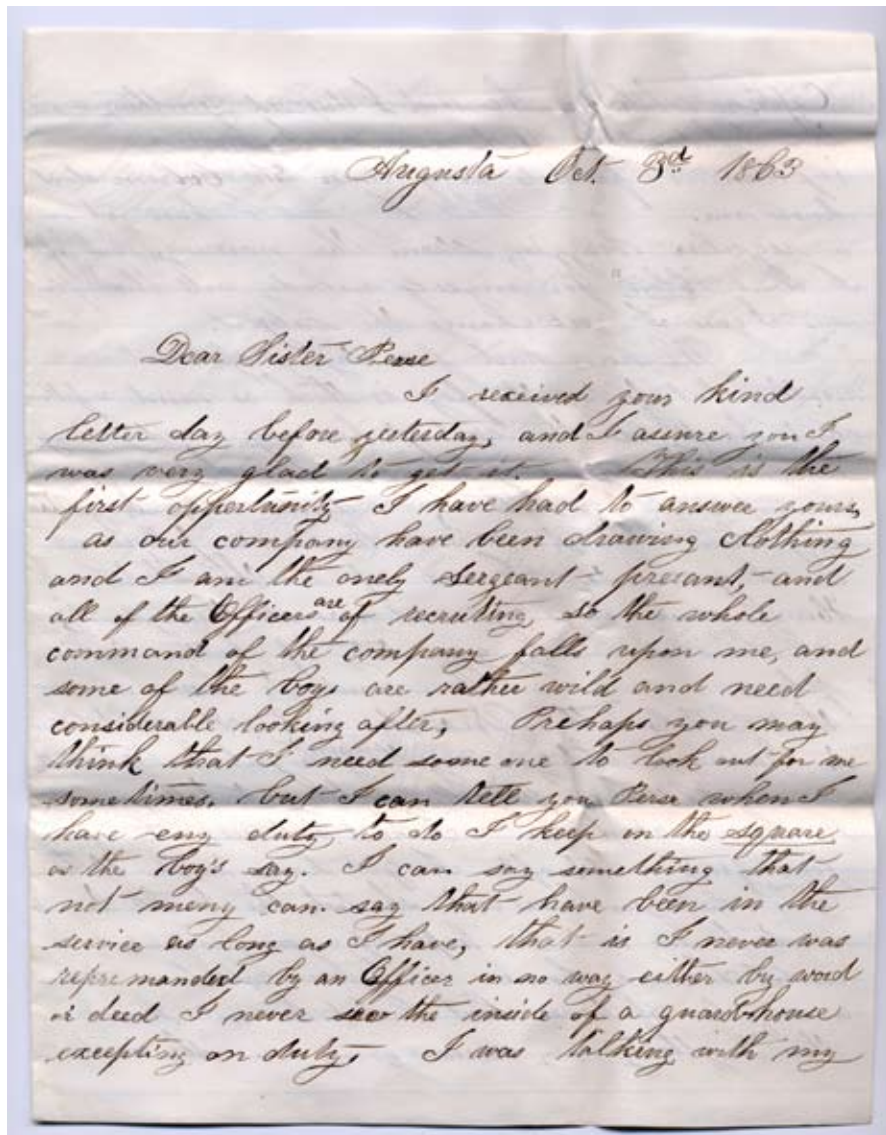 Augusta Oct. 3d 1863
Dear Sister Perse
I received your kind
letter day before yesterday, and I assure you I
was very glad to get it. This is the
first oppertunity I have had to answer yours,
as our company have been drawing Clothing
and I am the onely Sergeant presant, and
all of the Officers are of recruting, so the whole
command of the company falls upon me, and
some of the boys are rather wild and need
considerable looking after, Prehaps you may
think that I need some one to look out for me
sometimes, but I can tell you Perse when I
have eny duty to do I keep on the square
as the boy's say. I can say something that
not meny can say that have been in the
service as long as I have, that is I never was
repremanded by an Officer in no way either by word
or deed I never saw the inside of a guard-house
excepting on duty, I was talking with my